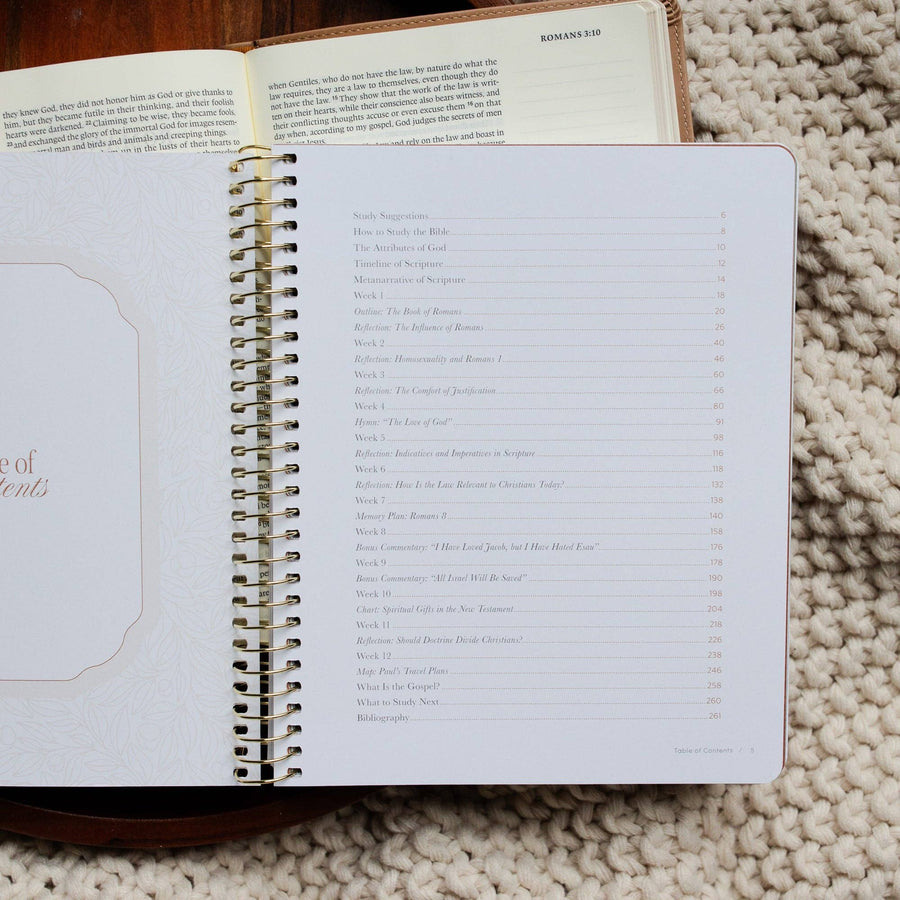 ROMANS 3:10
they knew God, they did not honor him as God or give thanks to
him, but they became futile in their thinking, and their foolish
hearts were darkened. 22 Claiming to be wise, they became fools,
23 and exchanged the glory of the immortal God for images resem-
man and birds and animals and creeping things.
up in the lusts of their
when Gentiles, who do not have the law, by nature do what the
law requires, they are a law to themselves, even though they do
not have the law. 15 They show that the work of the law is writ-
ten on their hearts, while their conscience also bears witness, and
their conflicting thoughts accuse or even excuse them 16 on that
day when, according to my gospel, God judges the secrets of men
law and rely on the law and boast in
e of
tents
Study Suggestions 6
How to Study the Bible 8
The Attributes of God 10
Timeline of Scripture 12
Metanarrative of Scripture 14
Week 1 18
Outline: The Book of Romans 20
Reflection: The Influence of Romans 26
Week 2 40
Reflection: Homosexuality and Romans 1 46
Week 3 60
Reflection: The Comfort of Justification 66
Week 4 80
Hymn: “The Love of God” 91
Week 5 98
Reflection: Indicatives and Imperatives in Scripture 116
Week 6 118
Reflection: How Is the Law Relevant to Christians Today? 132
Week 7 138
Memory Plan: Romans 8 140
Week 8 158
Bonus Commentary: “I Have Loved Jacob, but I Have Hated Esau” 176
Week 9 178
Bonus Commentary: “All Israel Will Be Saved” 190
Week 10 198
Chart: Spiritual Gifts in the New Testament 204
Week 11 218
Reflection: Should Doctrine Divide Christians? 226
Week 12 238
Map: Paul’s Travel Plans 246
What Is the Gospel? 258
What to Study Next 260
Bibliography 261
Table of Contents / 5